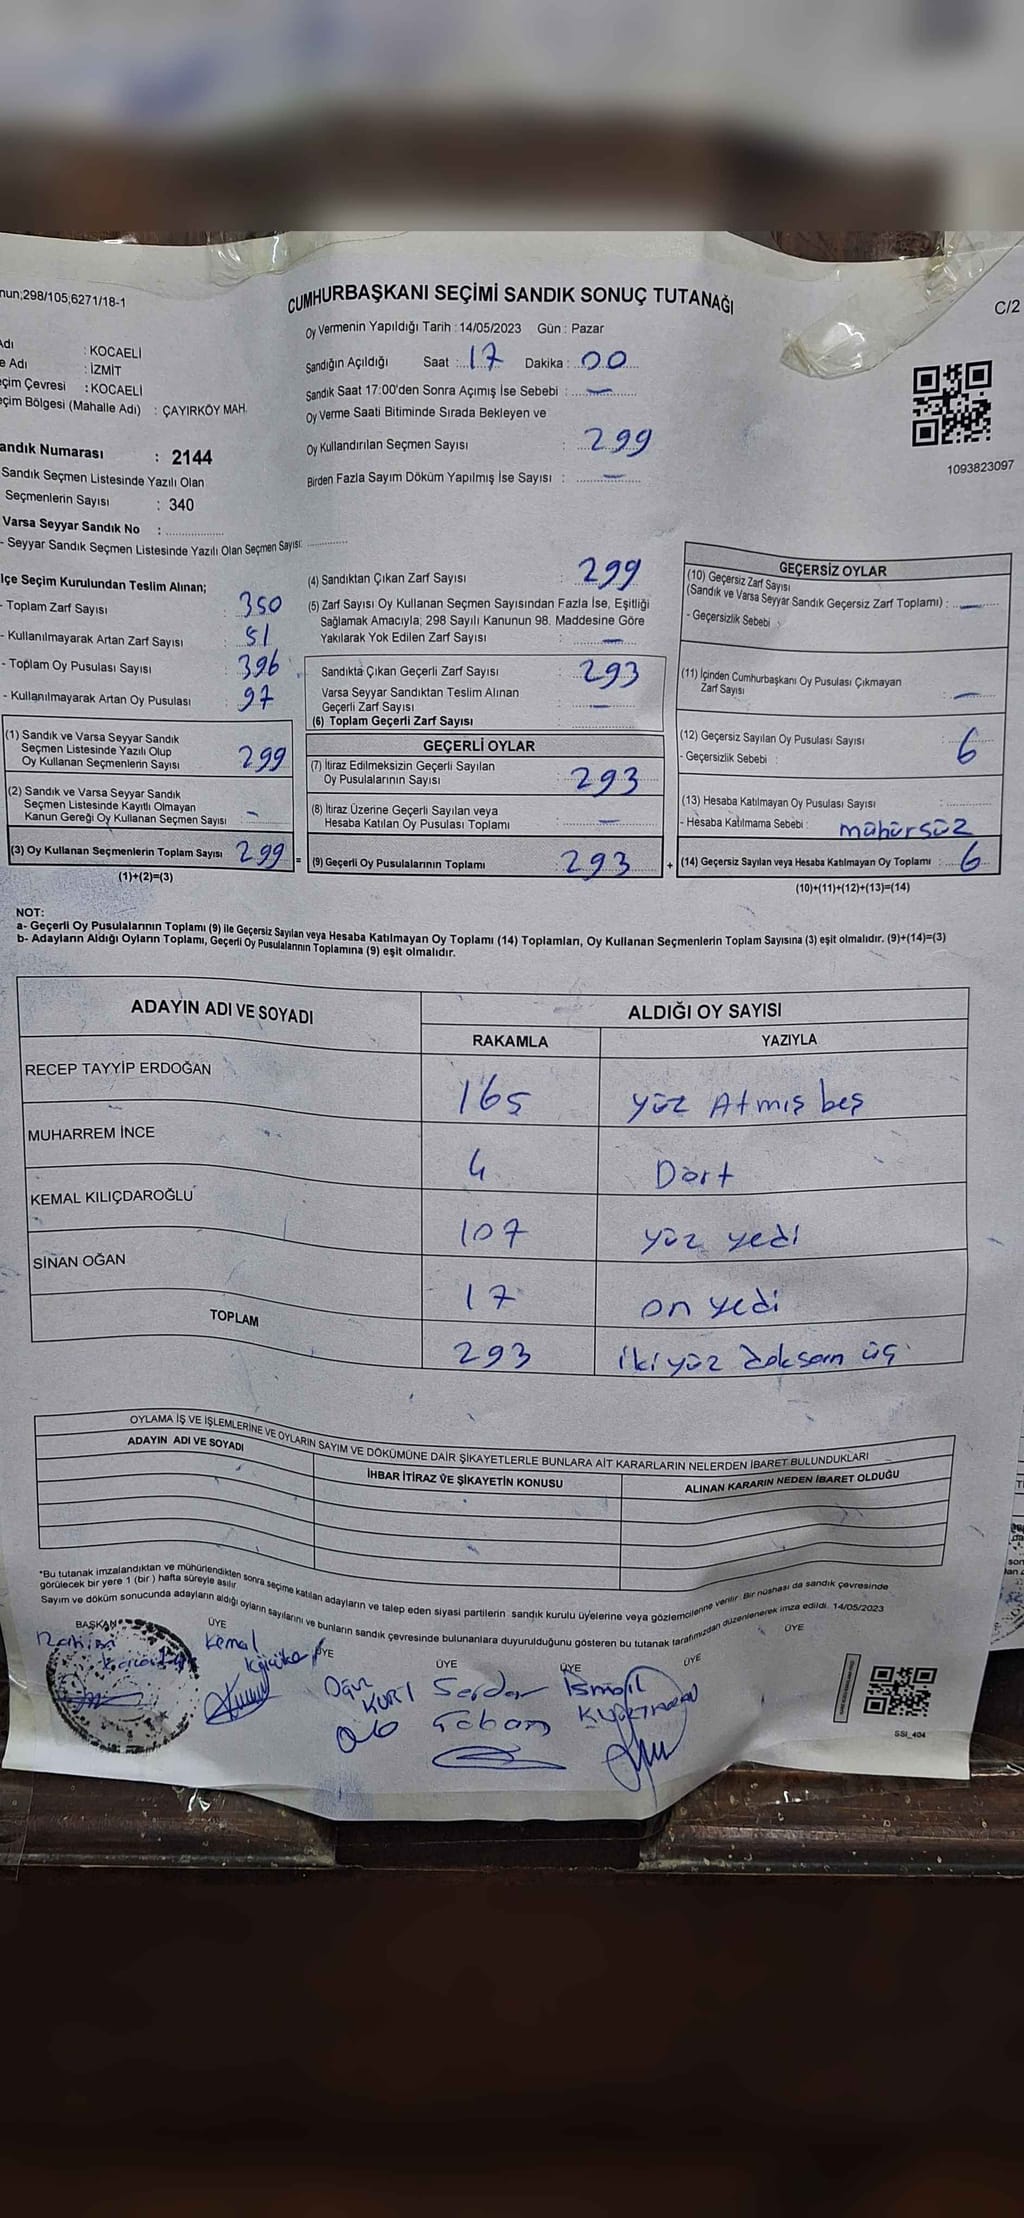 nun;298/105;6271/18-1
CUMHURBAŞKANI SEÇİMİ SANDIK SONUÇ TUTANAĞI
C/2
Oy Vermenin Yapıldığı Tarih : 14/05/2023 Gün : Pazar
Adı : KOCAELİ
e Adı : İZMİT
eçim Çevresi : KOCAELİ
eçim Bölgesi (Mahalle Adı) : ÇAYIRKÖY MAH.
andık Numarası : 2144
Sandık Seçmen Listesinde Yazılı Olan
Seçmenlerin Sayısı : 340
Varsa Seyyar Sandık No :
- Seyyar Sandık Seçmen Listesinde Yazılı Olan Seçmen Sayısı:
Sandığın Açıldığı Saat : 17 Dakika : 00
Sandık Saat 17:00'den Sonra Açımış İse Sebebi : —
Oy Verme Saati Bitiminde Sırada Bekleyen ve
Oy Kullandırılan Seçmen Sayısı : 299
Birden Fazla Sayım Döküm Yapılmış İse Sayısı : —
1093823097
lçe Seçim Kurulundan Teslim Alınan;
- Toplam Zarf Sayısı : 350
- Kullanılmayarak Artan Zarf Sayısı : 51
- Toplam Oy Pusulası Sayısı : 396
- Kullanılmayarak Artan Oy Pusulası : 97
(1) Sandık ve Varsa Seyyar Sandık
Seçmen Listesinde Yazılı Olup
Oy Kullanan Seçmenlerin Sayısı : 299
(2) Sandık ve Varsa Seyyar Sandık
Seçmen Listesinde Kayıtlı Olmayan
Kanun Gereği Oy Kullanan Seçmen Sayısı : —
(3) Oy Kullanan Seçmenlerin Toplam Sayısı 299 =
(1)+(2)=(3)
(4) Sandıktan Çıkan Zarf Sayısı : 299
(5) Zarf Sayısı Oy Kullanan Seçmen Sayısından Fazla İse, Eşitliği
Sağlamak Amacıyla; 298 Sayılı Kanunun 98. Maddesine Göre
Yakılarak Yok Edilen Zarf Sayısı : —
Sandıkta Çıkan Geçerli Zarf Sayısı : 293
Varsa Seyyar Sandıktan Teslim Alınan
Geçerli Zarf Sayısı : —
(6) Toplam Geçerli Zarf Sayısı :
GEÇERLİ OYLAR
(7) İtiraz Edilmeksizin Geçerli Sayılan
Oy Pusulalarının Sayısı : 293
(8) İtiraz Üzerine Geçerli Sayılan veya
Hesaba Katılan Oy Pusulası Toplamı : —
(9) Geçerli Oy Pusulalarının Toplamı : 293 +
GEÇERSİZ OYLAR
(10) Geçersiz Zarf Sayısı
(Sandık ve Varsa Seyyar Sandık Geçersiz Zarf Toplamı) : —
- Geçersizlik Sebebi :
(11) İçinden Cumhurbaşkanı Oy Pusulası Çıkmayan
Zarf Sayısı : —
(12) Geçersiz Sayılan Oy Pusulası Sayısı : 6
- Geçersizlik Sebebi :
(13) Hesaba Katılmayan Oy Pusulası Sayısı :
- Hesaba Katılmama Sebebi : mühürsüz
(14) Geçersiz Sayılan veya Hesaba Katılmayan Oy Toplamı : 6
(10)+(11)+(12)+(13)=(14)
NOT:
a- Geçerli Oy Pusulalarının Toplamı (9) ile Geçersiz Sayılan veya Hesaba Katılmayan Oy Toplamı (14) Toplamları, Oy Kullanan Seçmenlerin Toplam Sayısına (3) eşit olmalıdır. (9)+(14)=(3)
b- Adayların Aldığı Oyların Toplamı, Geçerli Oy Pusulalarının Toplamına (9) eşit olmalıdır.
ADAYIN ADI VE SOYADI
ALDIĞI OY SAYISI
RAKAMLA YAZIYLA
RECEP TAYYİP ERDOĞAN 165 yüz Atmış beş
MUHARREM İNCE 4 Dört
KEMAL KILIÇDAROĞLU 107 yüz yedi
SİNAN OĞAN 17 on yedi
TOPLAM 293 iki yüz doksan üç
OYLAMA İŞ VE İŞLEMLERİNE VE OYLARIN SAYIM VE DÖKÜMÜNE DAİR ŞİKAYETLERLE BUNLARA AİT KARARLARIN NELERDEN İBARET BULUNDUKLARI
ADAYIN ADI VE SOYADI
İHBAR İTİRAZ VE ŞİKAYETİN KONUSU
ALINAN KARARIN NEDEN İBARET OLDUĞU
*Bu tutanak imzalandıktan ve mühürlendikten sonra seçime katılan adayların ve talep eden siyasi partilerin sandık kurulu üyelerine veya gözlemcilerine verilir. Bir nüshası da sandık çevresinde
görülecek bir yere 1 (bir ) hafta süreyle asılır.
Sayım ve döküm sonucunda adayların aldığı oyların sayılarını ve bunların sandık çevresinde bulunanlara duyurulduğunu gösteren bu tutanak tarafımızdan düzenlenerek imza edildi. 14/05/2023
BAŞKAN ÜYE ÜYE ÜYE ÜYE ÜYE ÜYE
Kemal
Oğuz KURT
Serdar Çoban
İsmail
SSI_404